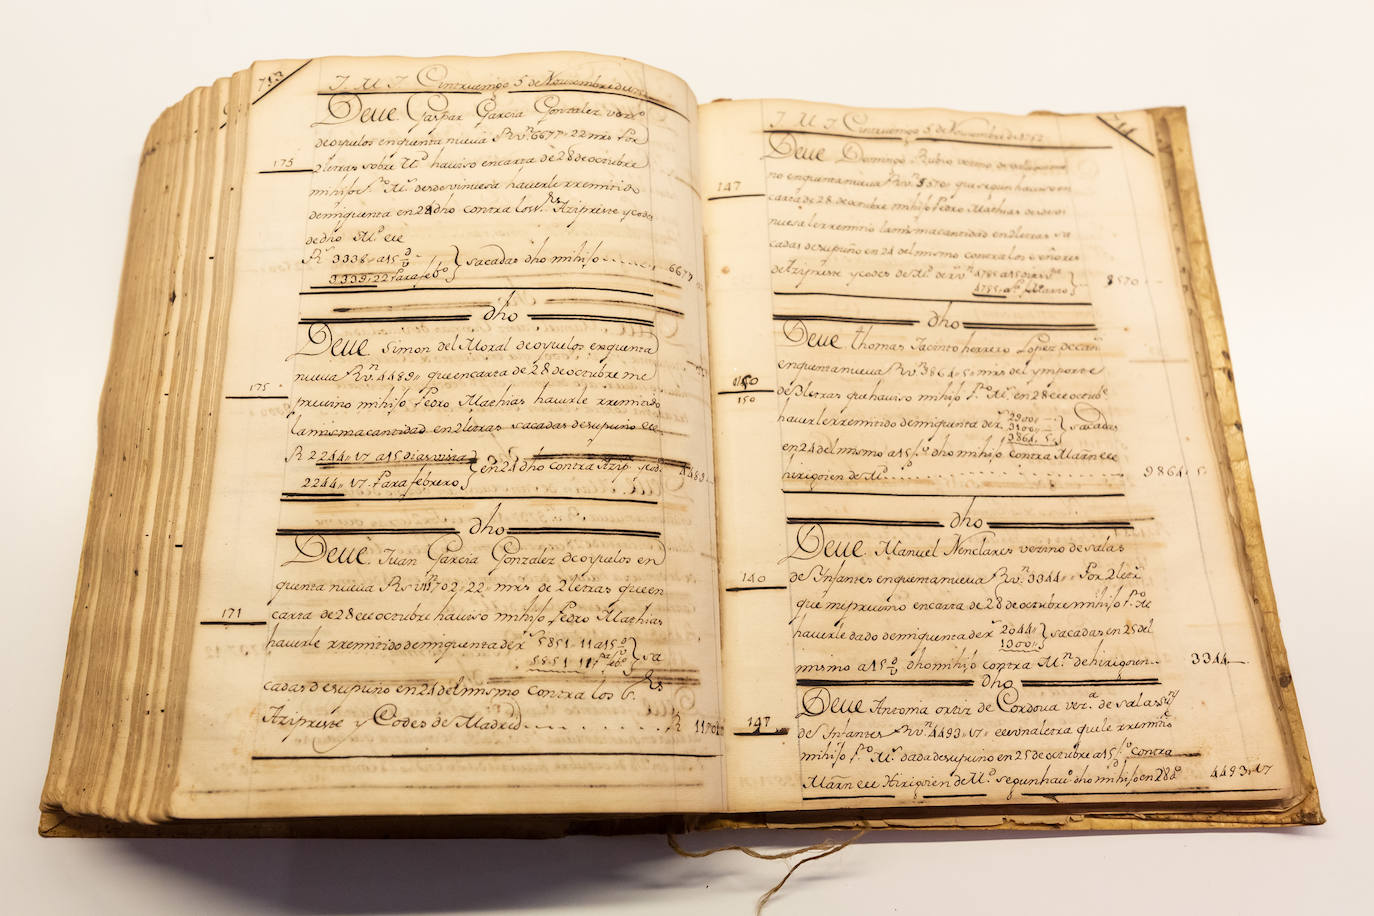 713
J M J Cintruenigo 5 de Noviembre de
Deue Gaspar Garcia Gonzalez vezno
de oyuelos enquenta nueva Rvn 6677 „ 22 mrs Por
175
2 letras sobre Md haviso encarta de 28 de octubre
mihijo Po Ms desde vinuesa haverle rremitido
demiquenta en 24 dho contra los Sres Azipreste y codes
de dho Md ece
Rn 3338 „ a 15 d/v
3339 „ 22 Para febo
sacadas dho mihijo 6677
dho
Deue Simon del Moral de oyuelos enquenta
nueva Rvn 4489 „ que encarta de 28 de octubre me
175
previno mihijo Pedro Mathias haverle rremitido
la misma cantidad en 2 letras sacadas desupuño ece
R 2244 „ 17 a 15 dias vista
2244 „ 17 Para febrero
en 24 dho contra Azip codes
4489
dho
Deue Juan Garcia Gonzalez de oyuelos en
quenta nueva Rs vn 11702 „ 22 „ mrs de 2 letras que en
171
carta de 28 ece octubre haviso mihijo Pedro Mathias
haverle rremitido demiquenta de rs 5851 „ 11 a 15 d/v
5851 „ 11 pa febo
sa
cadas desupuño en 24 del mismo contra los Sres
Azipreste y Codes de Madrid R 11702
J M J Cintruenigo 5 de Noviembre de
Deue Domingo Rubio vezino de
147
no enquenta nueva Rvn 8570 „ que segun haviso en
carta de 28 de octubre mihijo Pedro Mathias desde vi
nuesa le rremitio la misma cantidad en 2 letras sa
cadas desupuño en 24 del mismo contra los señores
de Azipreste y codes de Md de rvn 4785 a 15 dias vta
4785 „ a Marzo
8570
dho
Deue thomas Jacinto herrero Lopez de
enquenta nueva Rvn 3864 „ 5 „ mrs del ymporte
150
150
de 3 letras que haviso mihijo Po Ms en 28 ece octube
haverle rremitido demiquenta de rs 2900
3100
3864 „ 5
sacadas
en 24 del mismo a 15 dho mihijo contra Marn ece
hirigoien de Md 9864 „ 5
dho
Deue Manuel Nenclares vezino de salas
140
de Ynfantes enquenta nueva Rvn 3344 „ Por 2 letrs
que meprevino encarta de 28 de octubre mihijo Po M
haverle dado demiquenta de rs 2044 „
1300 „
sacadas en 25 del
mismo a 15 d/v dho mihijo contra Mn de hirigoien 3344
dho
Deue Antonia ortiz de Cordova veza de salas
147
de Ynfantes Rvn 4493 „ 17 „ ece una letra que le rremitio
mihijo Po Ms dada desupuño en 25 de octubre a 15 contra
Marn ece Hirigoien de Md segun havo dho mihijo en 28 do 4493 „ 17